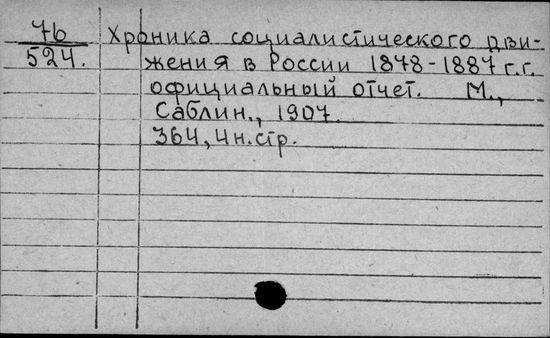 7б Хроника социалистического дви-
524. жения в России 1878-1887 г.г.
официальный отчет. М.,
Саблин., 1907.
364, 4н.стр.